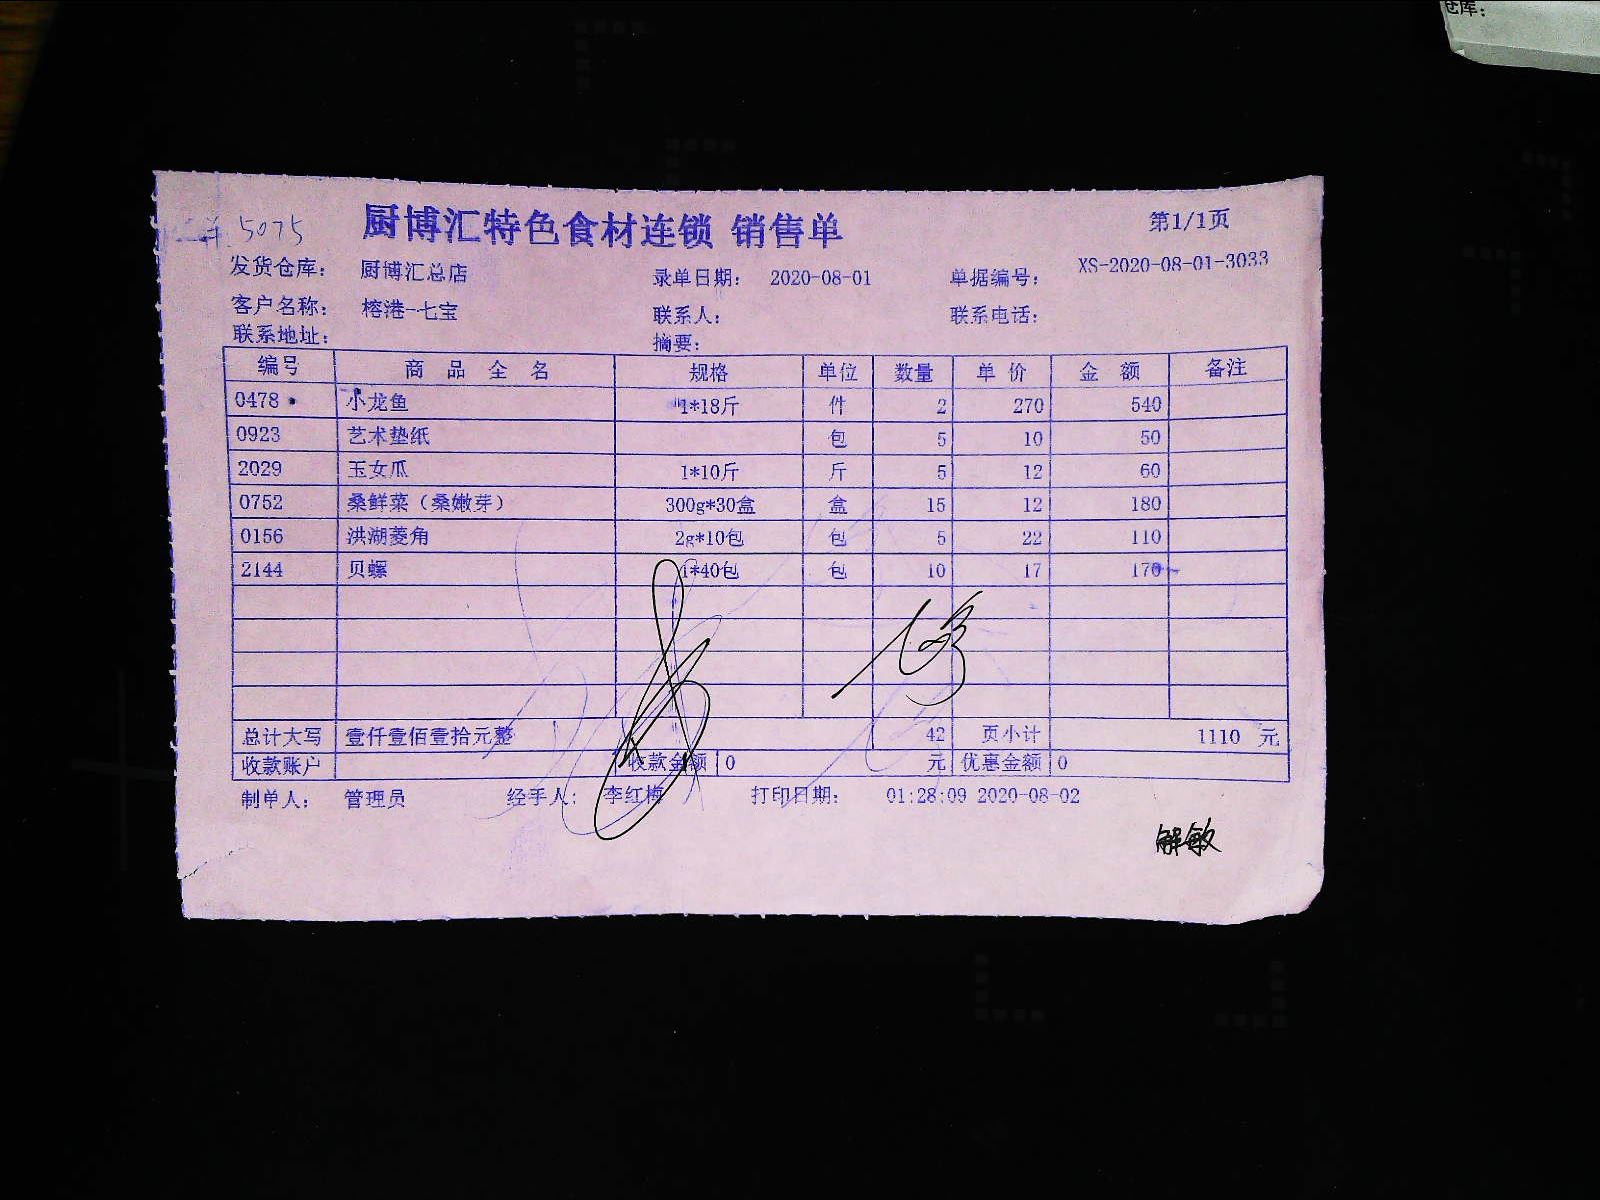 仓库：
5075
厨博汇特色食材连锁 销售单
第1/1页
发货仓库： 厨博汇总店 录单日期： 2020-08-01 单据编号： XS-2020-08-01-3033
客户名称： 榕港-七宝 联系人： 联系电话：
联系地址： 摘要：
编号 商品全名 规格 单位 数量 单价 金额 备注
0478 小龙鱼 1*18斤 件 2 270 540
0923 艺术垫纸 包 5 10 50
2029 玉女瓜 1*10斤 斤 5 12 60
0752 桑鲜菜（桑嫩芽） 300g*30盒 盒 15 12 180
0156 洪湖菱角 2g*10包 包 5 22 110
2144 贝螺 1*40包 包 10 17 170
总计大写 壹仟壹佰壹拾元整 42 页小计 1110 元
收款账户 收款金额 0 元 优惠金额 0
制单人： 管理员 经手人： 李红梅 打印日期： 01:28:09 2020-08-02
解敏